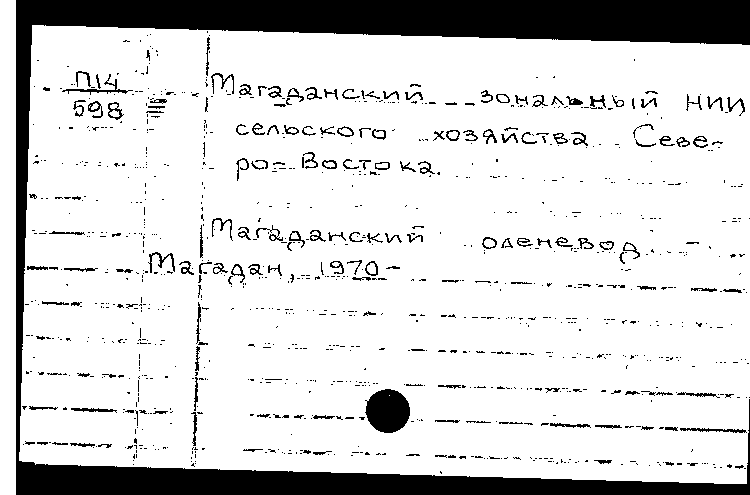 П14
598
Магаданский зональный НИИ
сельского хозяйства Севе-
ро-Востока.
Магаданский оленевод. -
Магадан, 1970-